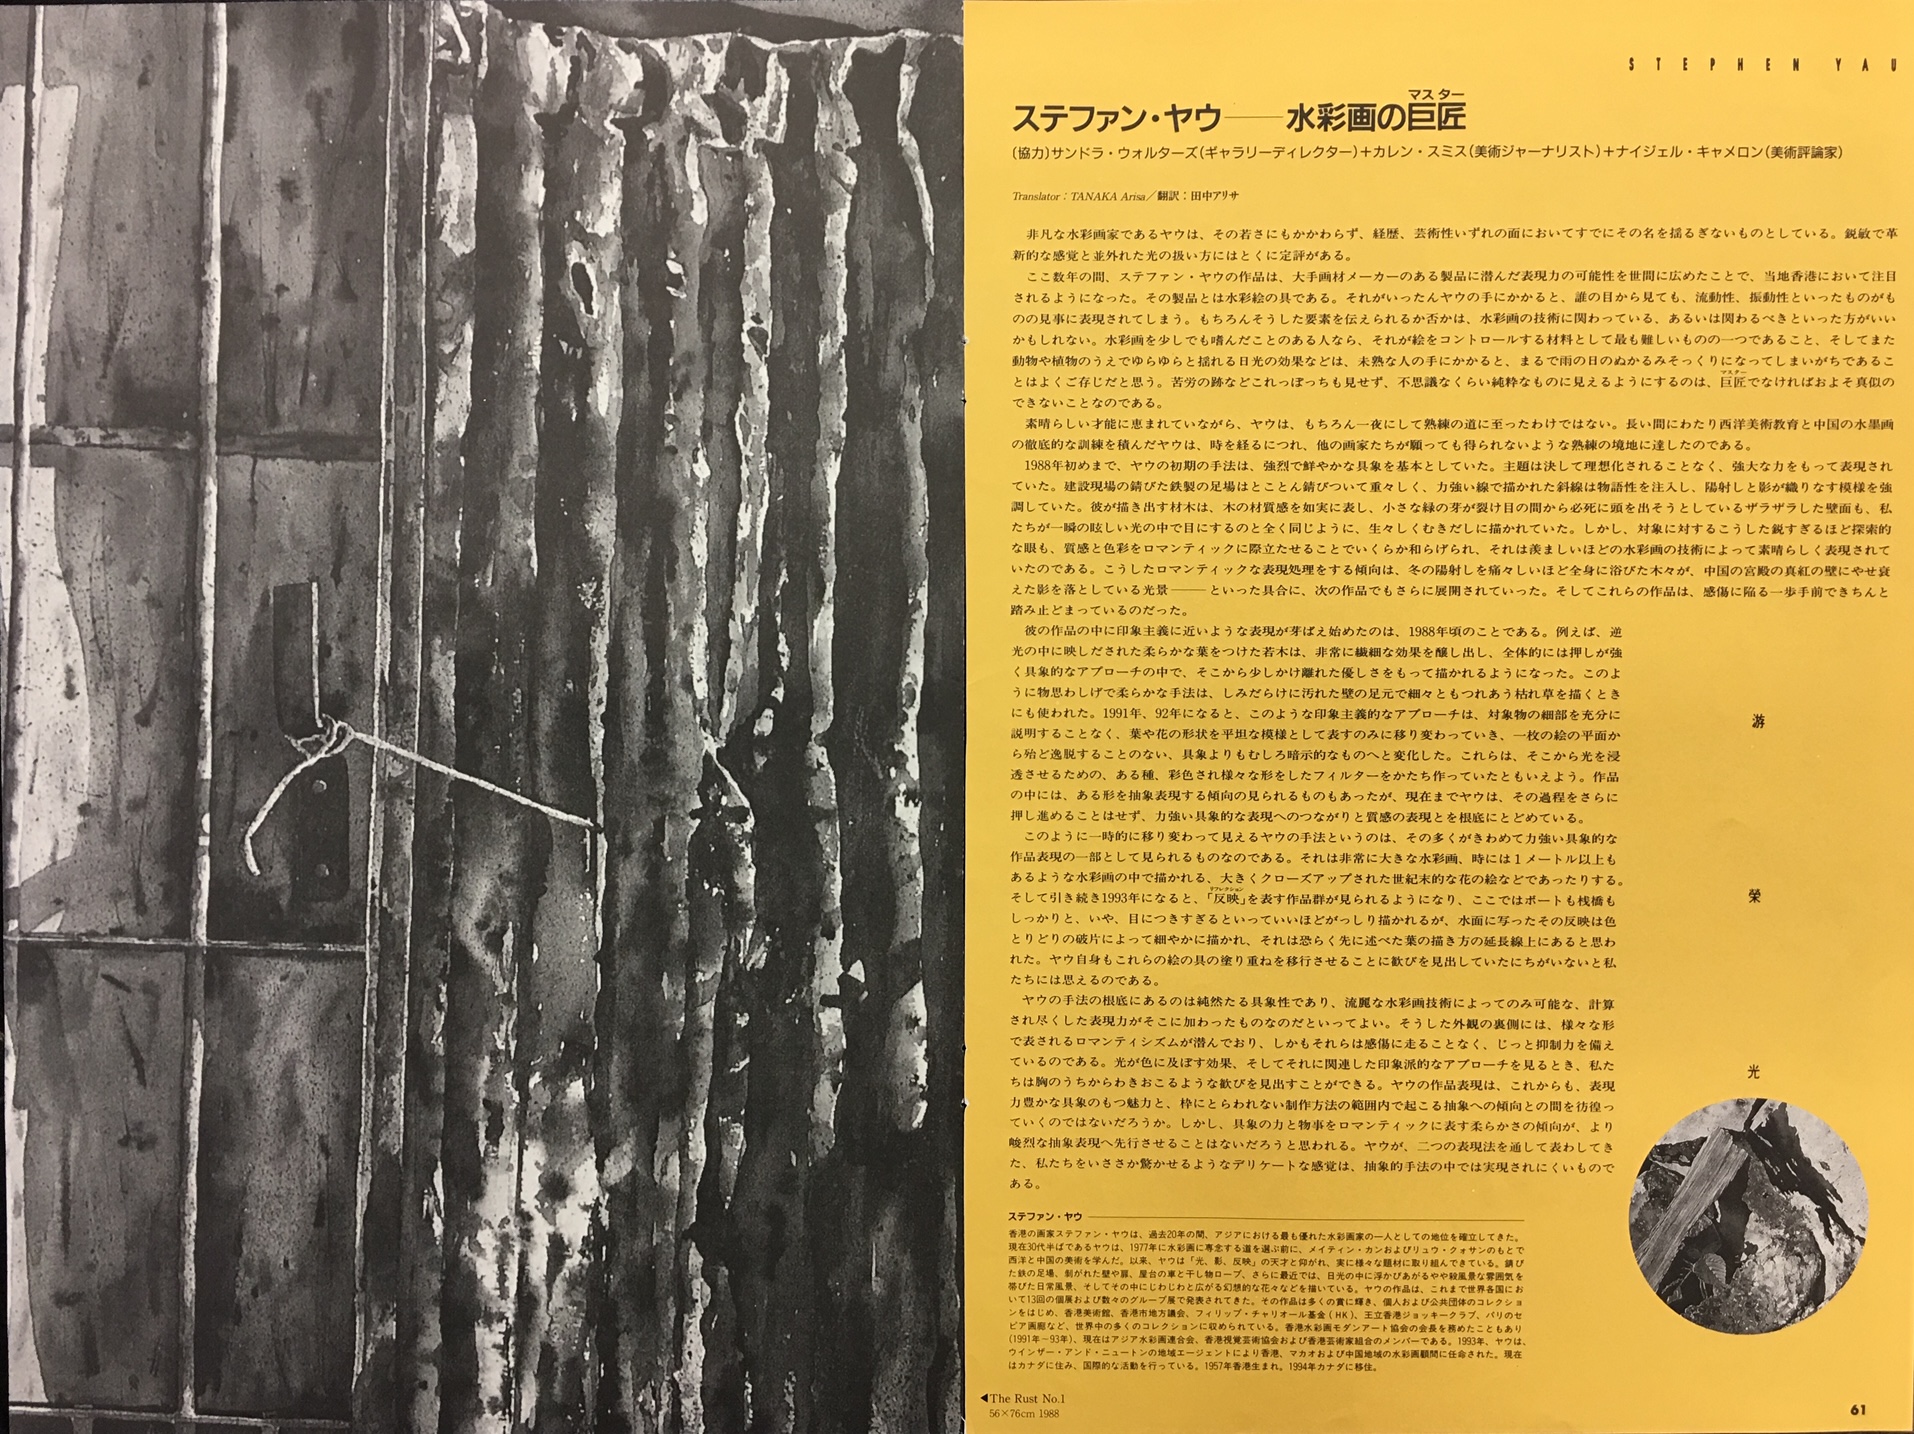 STEPHEN YAU
マスター
ステファン・ヤウ――水彩画の巨匠
(協力)サンドラ・ウォルターズ(ギャラリーディレクター)+カレン・スミス(美術ジャーナリスト)+ナイジェル・キャメロン(美術評論家)
Translator：TANAKA Arisa／翻訳：田中アリサ
非凡な水彩画家であるヤウは、その若さにもかかわらず、経歴、芸術性いずれの面においてすでにその名を揺るぎないものとしている。鋭敏で革
新的な感覚と並外れた光の扱い方にはとくに定評がある。
ここ数年の間、ステファン・ヤウの作品は、大手画材メーカーのある製品に潜んだ表現力の可能性を世間に広めたことで、当地香港において注目
されるようになった。その製品とは水彩絵の具である。それがいったんヤウの手にかかると、誰の目から見ても、流動性、振動性といったものがも
のの見事に表現されてしまう。もちろんそうした要素を伝えられるか否かは、水彩画の技術に関わっている、あるいは関わるべきといった方がいい
かもしれない。水彩画を少しでも嗜んだことのある人なら、それが絵をコントロールする材料として最も難しいものの一つであること、そしてまた
動物や植物のうえでゆらゆらと揺れる日光の効果などは、未熟な人の手にかかると、まるで雨の日のぬかるみそっくりになってしまいがちであるこ
マスター
とはよくご存じだと思う。苦労の跡などこれっぽっちも見せず、不思議なくらい純粋なものに見えるようにするのは、巨匠でなければおよそ真似の
できないことなのである。
素晴らしい才能に恵まれていながら、ヤウは、もちろん一夜にして熟練の道に至ったわけではない。長い間にわたり西洋美術教育と中国の水墨画
の徹底的な訓練を積んだヤウは、時を経るにつれ、他の画家たちが願っても得られないような熟練の境地に達したのである。
1988年初めまで、ヤウの初期の手法は、強烈で鮮やかな具象を基本としていた。主題は決して理想化されることなく、強大な力をもって表現され
ていた。建設現場の錆びた鉄製の足場はとことん錆びついて重々しく、力強い線で描かれた斜線は物語性を注入し、陽射しと影が織りなす模様を強
調していた。彼が描き出す材木は、木の材質感を如実に表し、小さな緑の芽が裂け目の間から必死に頭を出そうとしているザラザラした壁面も、私
たちが一瞬の眩しい光の中で目にするのと全く同じように、生々しくむきだしに描かれていた。しかし、対象に対するこうした鋭すぎるほど探索的
な眼も、質感と色彩をロマンティックに際立たせることでいくらか和らげられ、それは羨ましいほどの水彩画の技術によって素晴らしく表現されて
いたのである。こうしたロマンティックな表現処理をする傾向は、冬の陽射しを痛々しいほど全身に浴びた木々が、中国の宮殿の真紅の壁にやせ衰
えた影を落としている光景――といった具合に、次の作品でもさらに展開されていった。そしてこれらの作品は、感傷に陥る一歩手前できちんと
踏み止どまっているのだった。
彼の作品の中に印象主義に近いような表現が芽ばえ始めたのは、1988年頃のことである。例えば、逆
光の中に映しだされた柔らかな葉をつけた若木は、非常に繊細な効果を醸し出し、全体的には押しが強
く具象的なアプローチの中で、そこから少しかけ離れた優しさをもって描かれるようになった。このよ
うに物思わしげで柔らかな手法は、しみだらけに汚れた壁の足元で細々ともつれあう枯れ草を描くとき
にも使われた。1991年、92年になると、このような印象主義的なアプローチは、対象物の細部を充分に
説明することなく、葉や花の形状を平坦な模様として表すのみに移り変わっていき、一枚の絵の平面か
ら殆ど逸脱することのない、具象よりもむしろ暗示的なものへと変化した。これらは、そこから光を浸
透させるための、ある種、彩色され様々な形をしたフィルターをかたち作っていたともいえよう。作品
の中には、ある形を抽象表現する傾向の見られるものもあったが、現在までヤウは、その過程をさらに
押し進めることはせず、力強い具象的な表現へのつながりと質感の表現とを根底にとどめている。
このように一時的に移り変わって見えるヤウの手法というのは、その多くがきわめて力強い具象的な
作品表現の一部として見られるものなのである。それは非常に大きな水彩画、時には1メートル以上も
あるような水彩画の中で描かれる、大きくクローズアップされた世紀末的な花の絵などであったりする。
リフレクション
そして引き続き1993年になると、「反映」を表す作品群が見られるようになり、ここではボートも桟橋も
しっかりと、いや、目につきすぎるといっていいほどがっしり描かれるが、水面に写ったその反映は色
とりどりの破片によって細やかに描かれ、それは恐らく先に述べた葉の描き方の延長線上にあると思わ
れた。ヤウ自身もこれらの絵の具の塗り重ねを移行させることに歓びを見出していたにちがいないと私
たちには思えるのである。
ヤウの手法の根底にあるのは純然たる具象性であり、流麗な水彩画技術によってのみ可能な、計算
され尽くした表現力がそこに加わったものなのだといってよい。そうした外観の裏側には、様々な形
で表されるロマンティシズムが潜んでおり、しかもそれらは感傷に走ることなく、じっと抑制力を備え
ているのである。光が色に及ぼす効果、そしてそれに関連した印象派的なアプローチを見るとき、私た
ちは胸のうちからわきおこるような歓びを見出すことができる。ヤウの作品表現は、これからも、表現
力豊かな具象のもつ魅力と、枠にとらわれない制作方法の範囲内で起こる抽象への傾向との間を彷徨っ
ていくのではないだろうか。しかし、具象の力と物事をロマンティックに表す柔らかさの傾向が、より
峻烈な抽象表現へ先行させることはないだろうと思われる。ヤウが、二つの表現法を通して表わしてき
た、私たちをいささか驚かせるようなデリケートな感覚は、抽象的手法の中では実現されにくいもので
ある。
游
榮
光
ステファン・ヤウ
香港の画家ステファン・ヤウは、過去20年の間、アジアにおける最も優れた水彩画家の一人としての地位を確立してきた。
現在30代半ばであるヤウは、1977年に水彩画に専念する道を選ぶ前に、メイティン・カンおよびリュウ・クォサンのもとで
西洋と中国の美術を学んだ。以来、ヤウは「光、影、反映」の天才と仰がれ、実に様々な題材に取り組んできている。錆び
た鉄の足場、剝がれた壁や扉、屋台の車と干し物ロープ、さらに最近では、日光の中に浮かびあがるやや殺風景な雰囲気を
帯びた日常風景、そしてその中にじわじわと広がる幻想的な花々などを描いている。ヤウの作品は、これまで世界各国にお
いて13回の個展および数々のグループ展で発表されてきた。その作品は多くの賞に輝き、個人および公共団体のコレクショ
ンをはじめ、香港美術館、香港市地方議会、フィリップ・チャリオール基金(HK)、王立香港ジョッキークラブ、パリのセ
ピア画廊など、世界中の多くのコレクションに収められている。香港水彩画モダンアート協会の会長を務めたこともあり
(1991年－93年)、現在はアジア水彩画連合会、香港視覚芸術協会および香港芸術家組合のメンバーである。1993年、ヤウは、
ウインザー・アンド・ニュートンの地域エージェントにより香港、マカオおよび中国地域の水彩画顧問に任命された。現在
はカナダに住み、国際的な活動を行っている。1957年香港生まれ。1994年カナダに移住。
◀The Rust No.1
56×76cm 1988
61